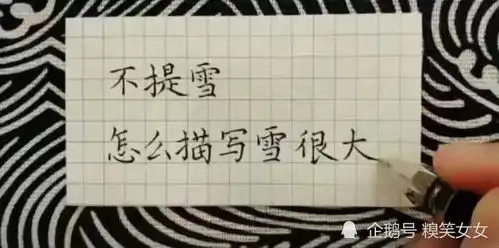 不提雪
怎么描写雪很大
企鹅号 糗笑女女